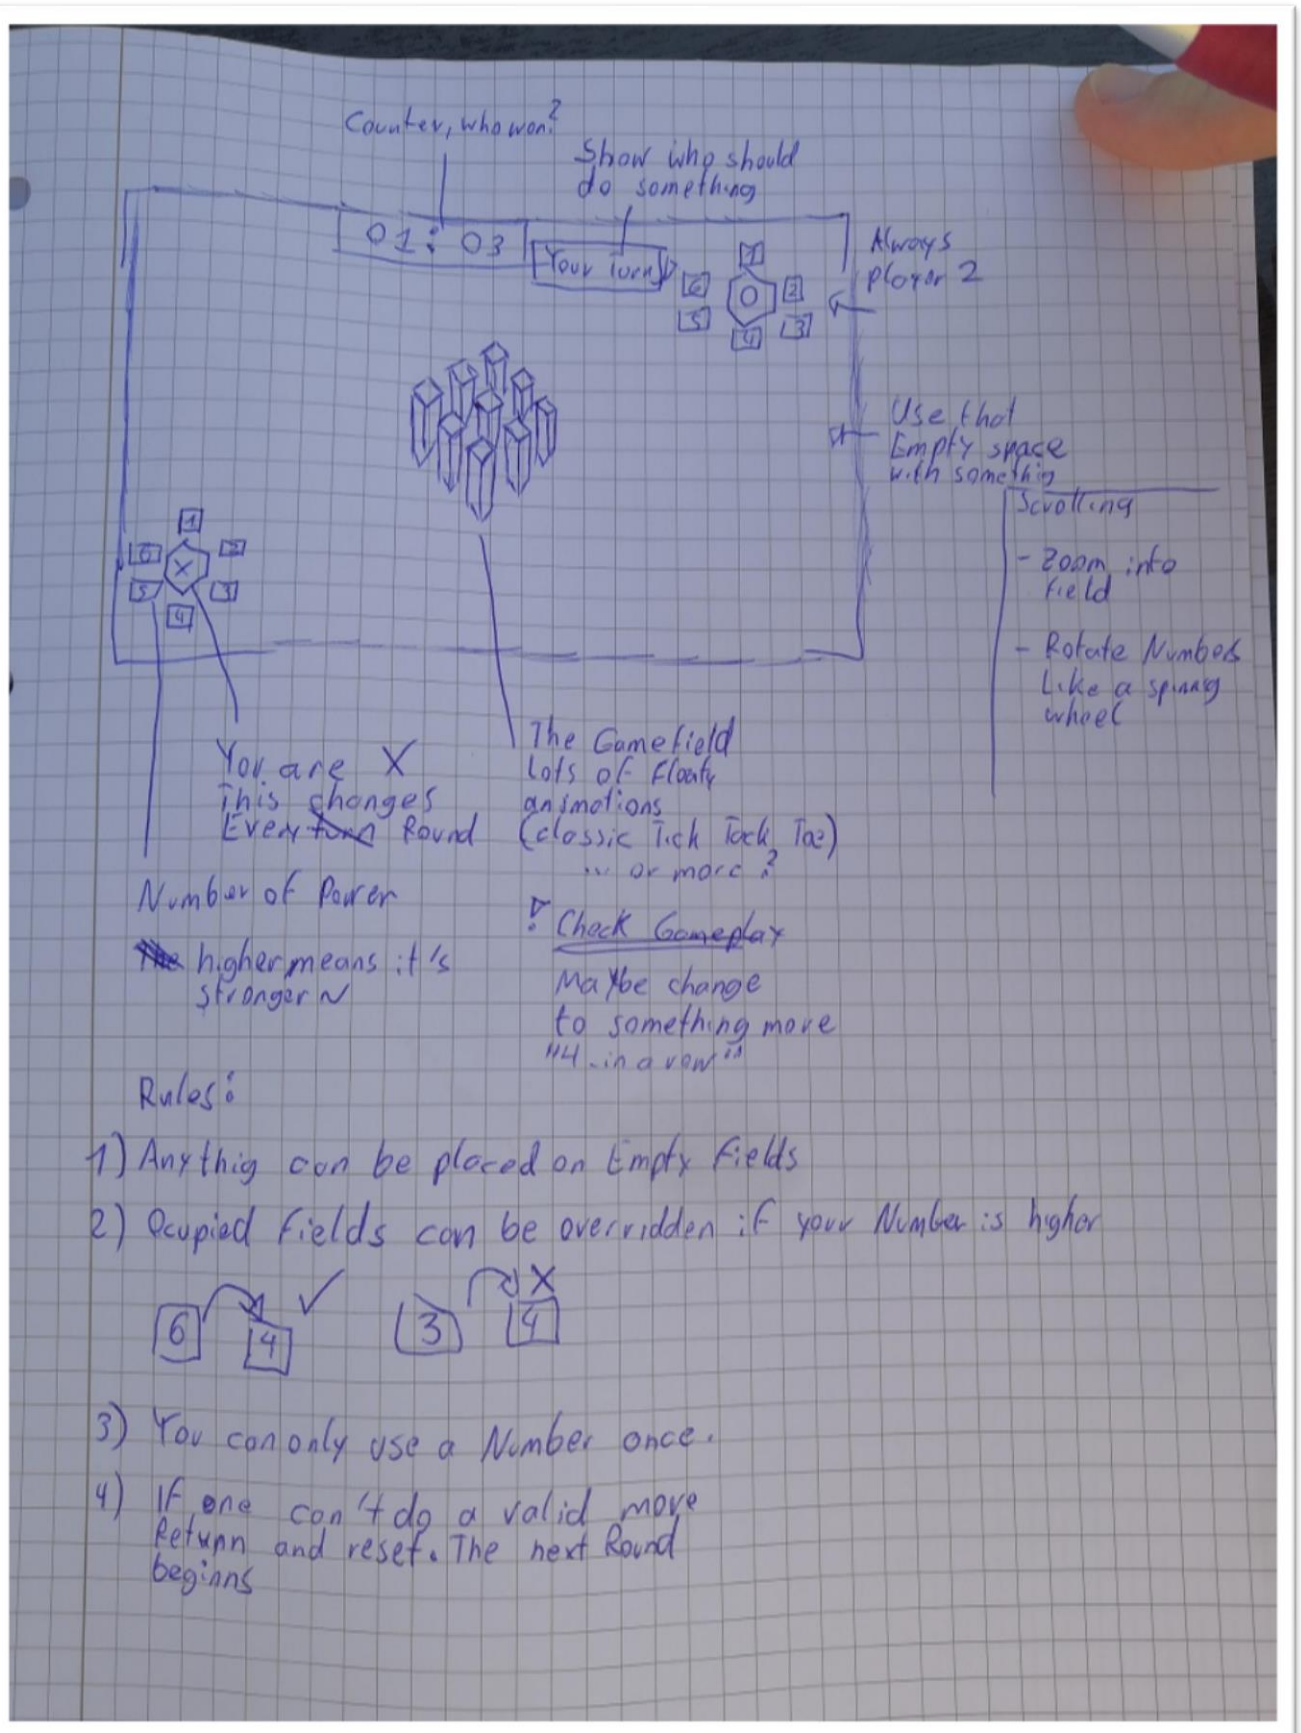 Counter, who won?
Show who should
do something
01:03
Your Turn
1
6
O
2
5
3
4
Always
player 2
Use that
Empty space
with somethig
Scrolling
- Zoom into
field
- Rotate Numbers
Like a spinnig
wheel
1
6
X
2
5
3
4
You are X
This changes
Every turn Round
The Gamefield
Lots of floaty
animations
(classic Tick Tack Toe)
... or more?
Number of Power
The higher means it's
stronger ~
! Check Gameplay
Maybe change
to something more
"4-in a row"
Rules:
1) Anythig can be placed on Empty Fields
2) Ocupied Fields can be overridden if your Number is higher
6 4 ✓ 3 4 X
3) You can only use a Number once.
4) If one can't do a valid move
Return and reset. The next Round
beginns